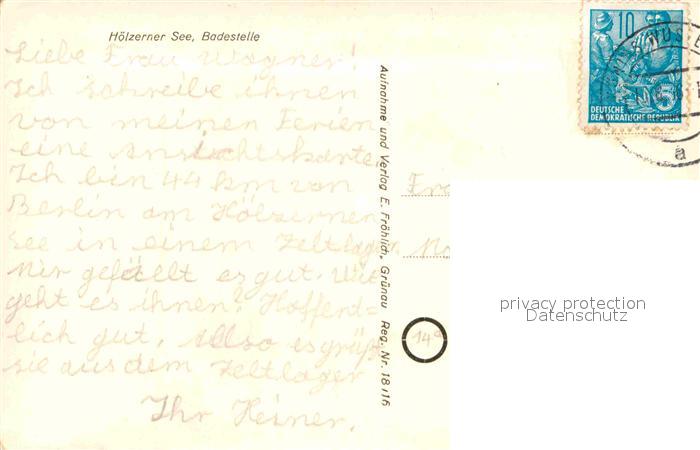 Hölzerner See, Badestelle
Liebe Frau Wagner!
Ich schreibe ihnen
von meinen Ferien
eine Ansichtskarte.
Ich bin 44 km von
Berlin am Hölzernen
see in einem Zeltlager.
Mir gefällt es gut. Wie
geht es ihnen? Hoffent=
lich gut. Allso es grüßt
sie aus dem Zeltlager
Ihr Heiner.
Aufnahme und Verlag E. Fröhlich, Grünau Reg. Nr. 18/16
10
5
DEUTSCHE
DEMOKRATISCHE REPUBLIK
a
Fra
14a
privacy protection
Datenschutz